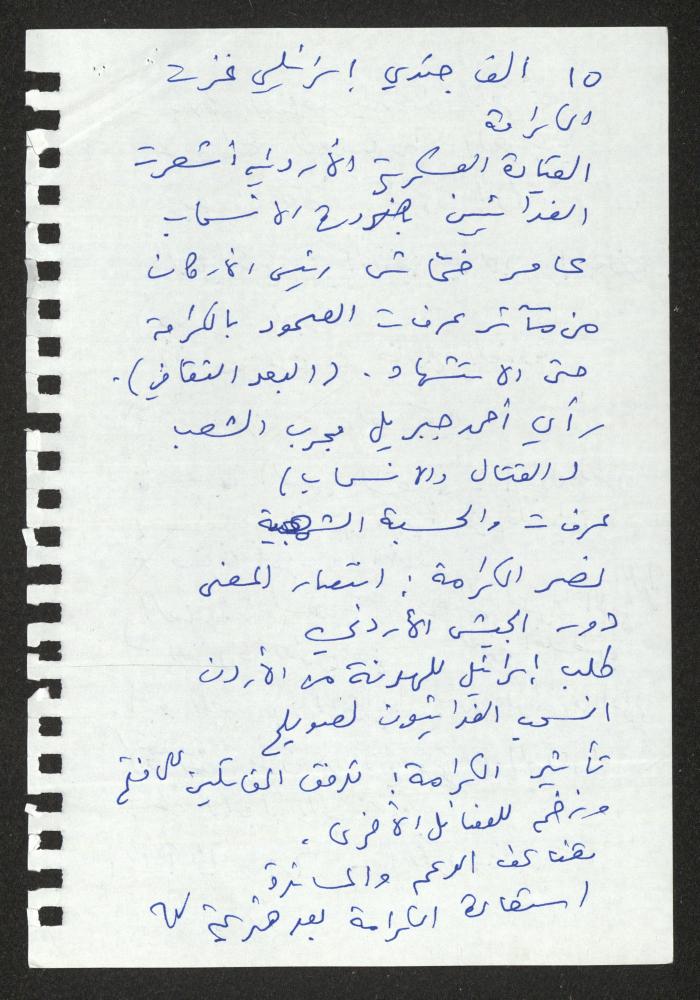 ١٥ الف جندي إسرائيلي غزت
الكرامة
القيادة العسكرية الأردنية أشعرت
الفدائيين بضرورة الانسحاب
عامر خماش رئيس الأركان
من مآثر عرفات الصمود بالكرامة
حتى الاستشهاد. (البعد الثقافي).
رأي أحمد جبريل مجرب الشعب
(القتال والانسحاب)
عرفات والحسبة الشعبية
نصر الكرامة: انتصار المعنى
دور الجيش الأردني
طلب إسرائيل للهدنة من الأردن
انسحب الفدائيون لصويلح
تأثير الكرامة: تدفق المقاتلين على فتح
وزخم للفصائل الأخرى.
تضاعف الدعم والمساندة
استعادة الكرامة بعد هزيمة ٦٧